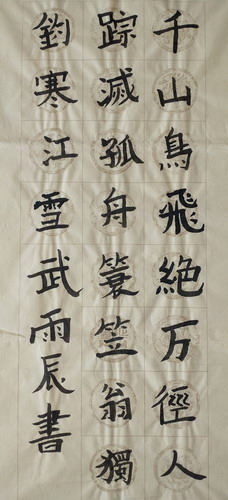 千山鳥飛絶万徑人
踪滅孤舟簑笠翁獨
釣寒江雪武雨辰書